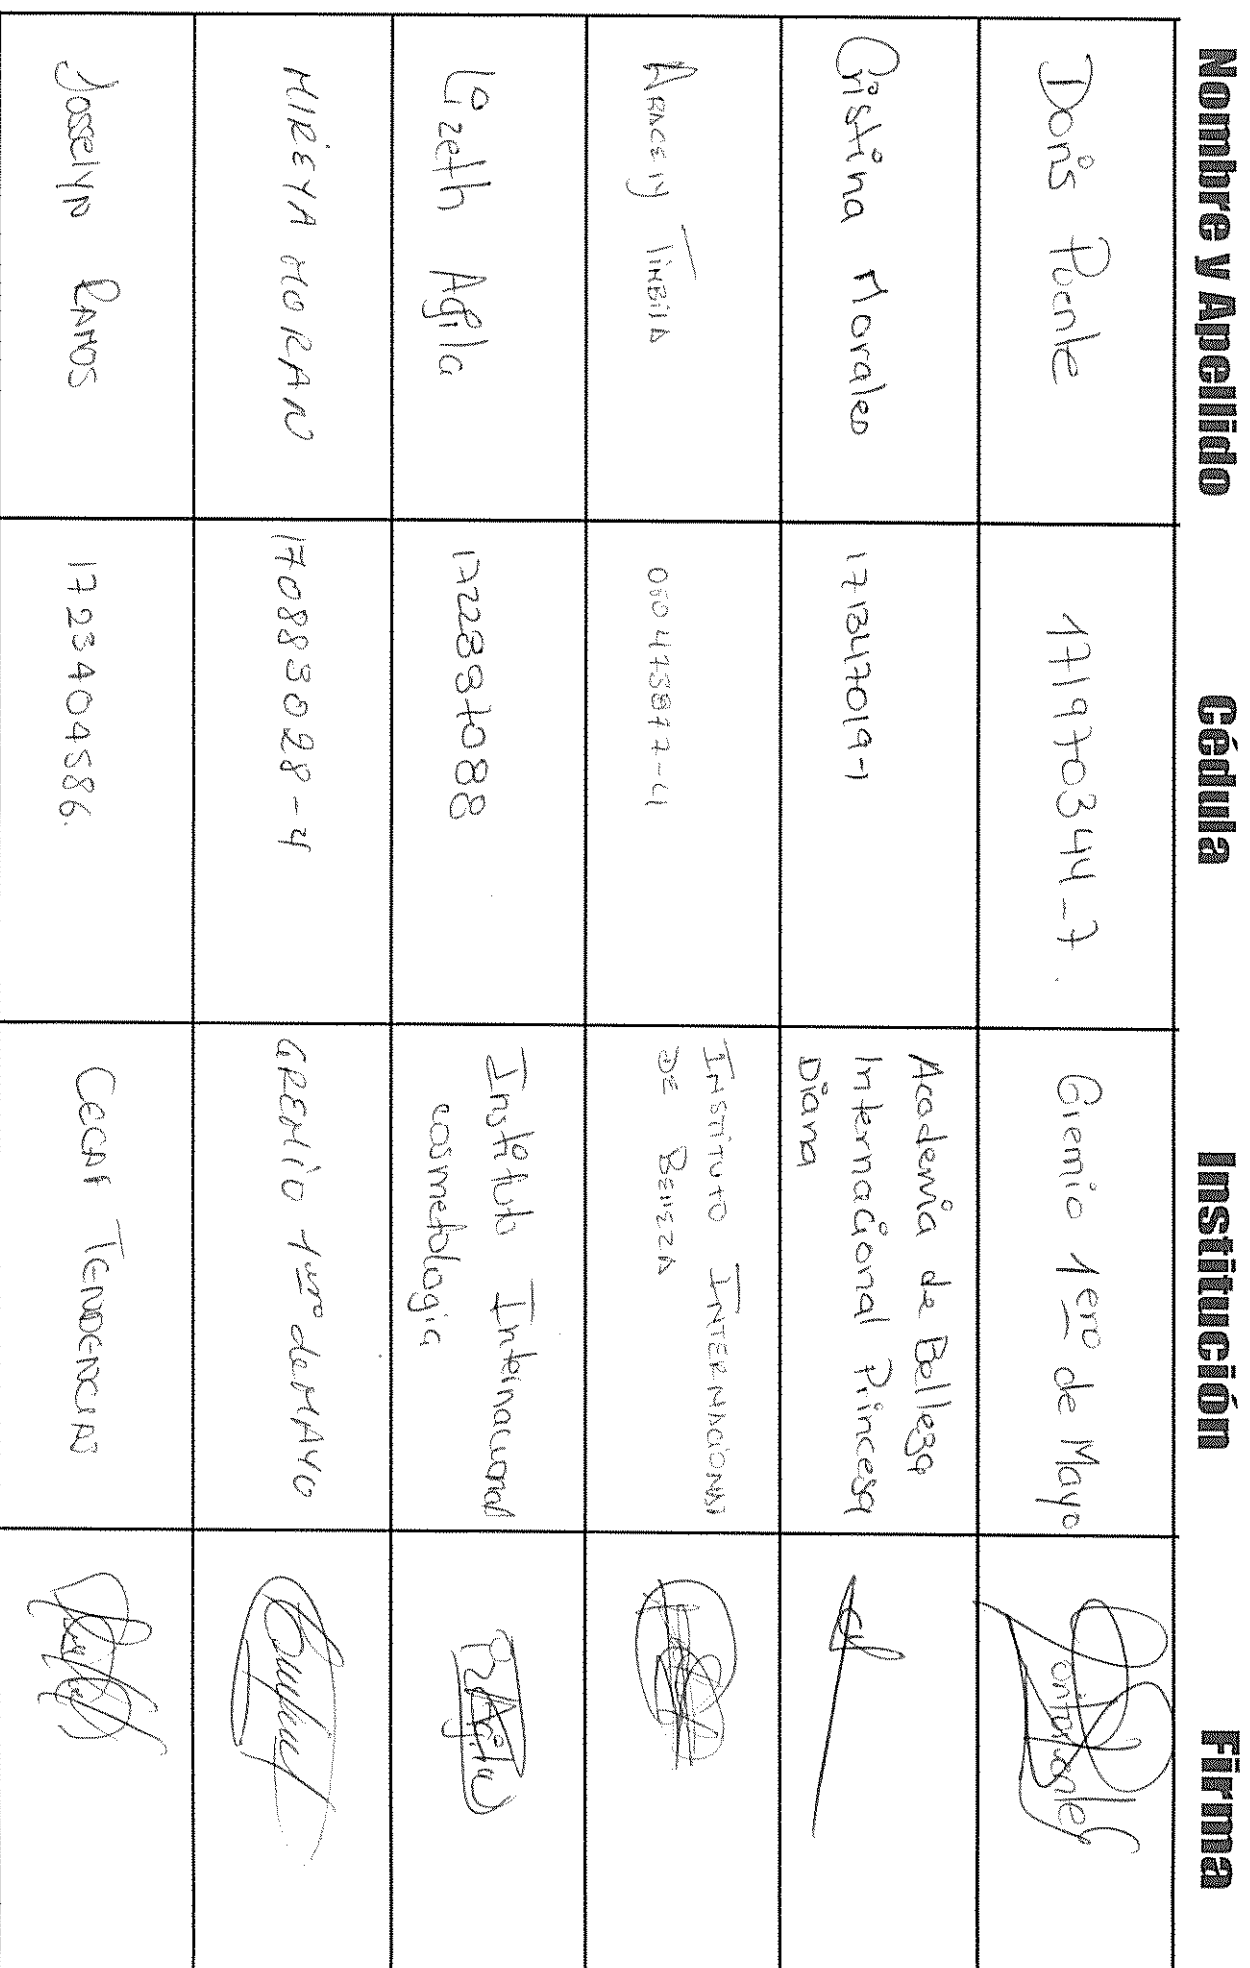 Nombre y Apellido Cédula Institución Firma
Doris Puente 171970344-7. Gremio 1ero de Mayo
Cristina Morales 171347019-1 Academia de Belleza
Internacional Princesa
Diana
Aracely Timbila INSTITUTO INTERNACIONAL
DE BELLEZA
Lizeth Agila 1722897088 Instituto Internacional
cosmetologia
MIREYA MORAN 170883028-4 GREMIO 1ero de MAYO
Josselyn Ramos 1723404586. CECAF TENDENCIAS